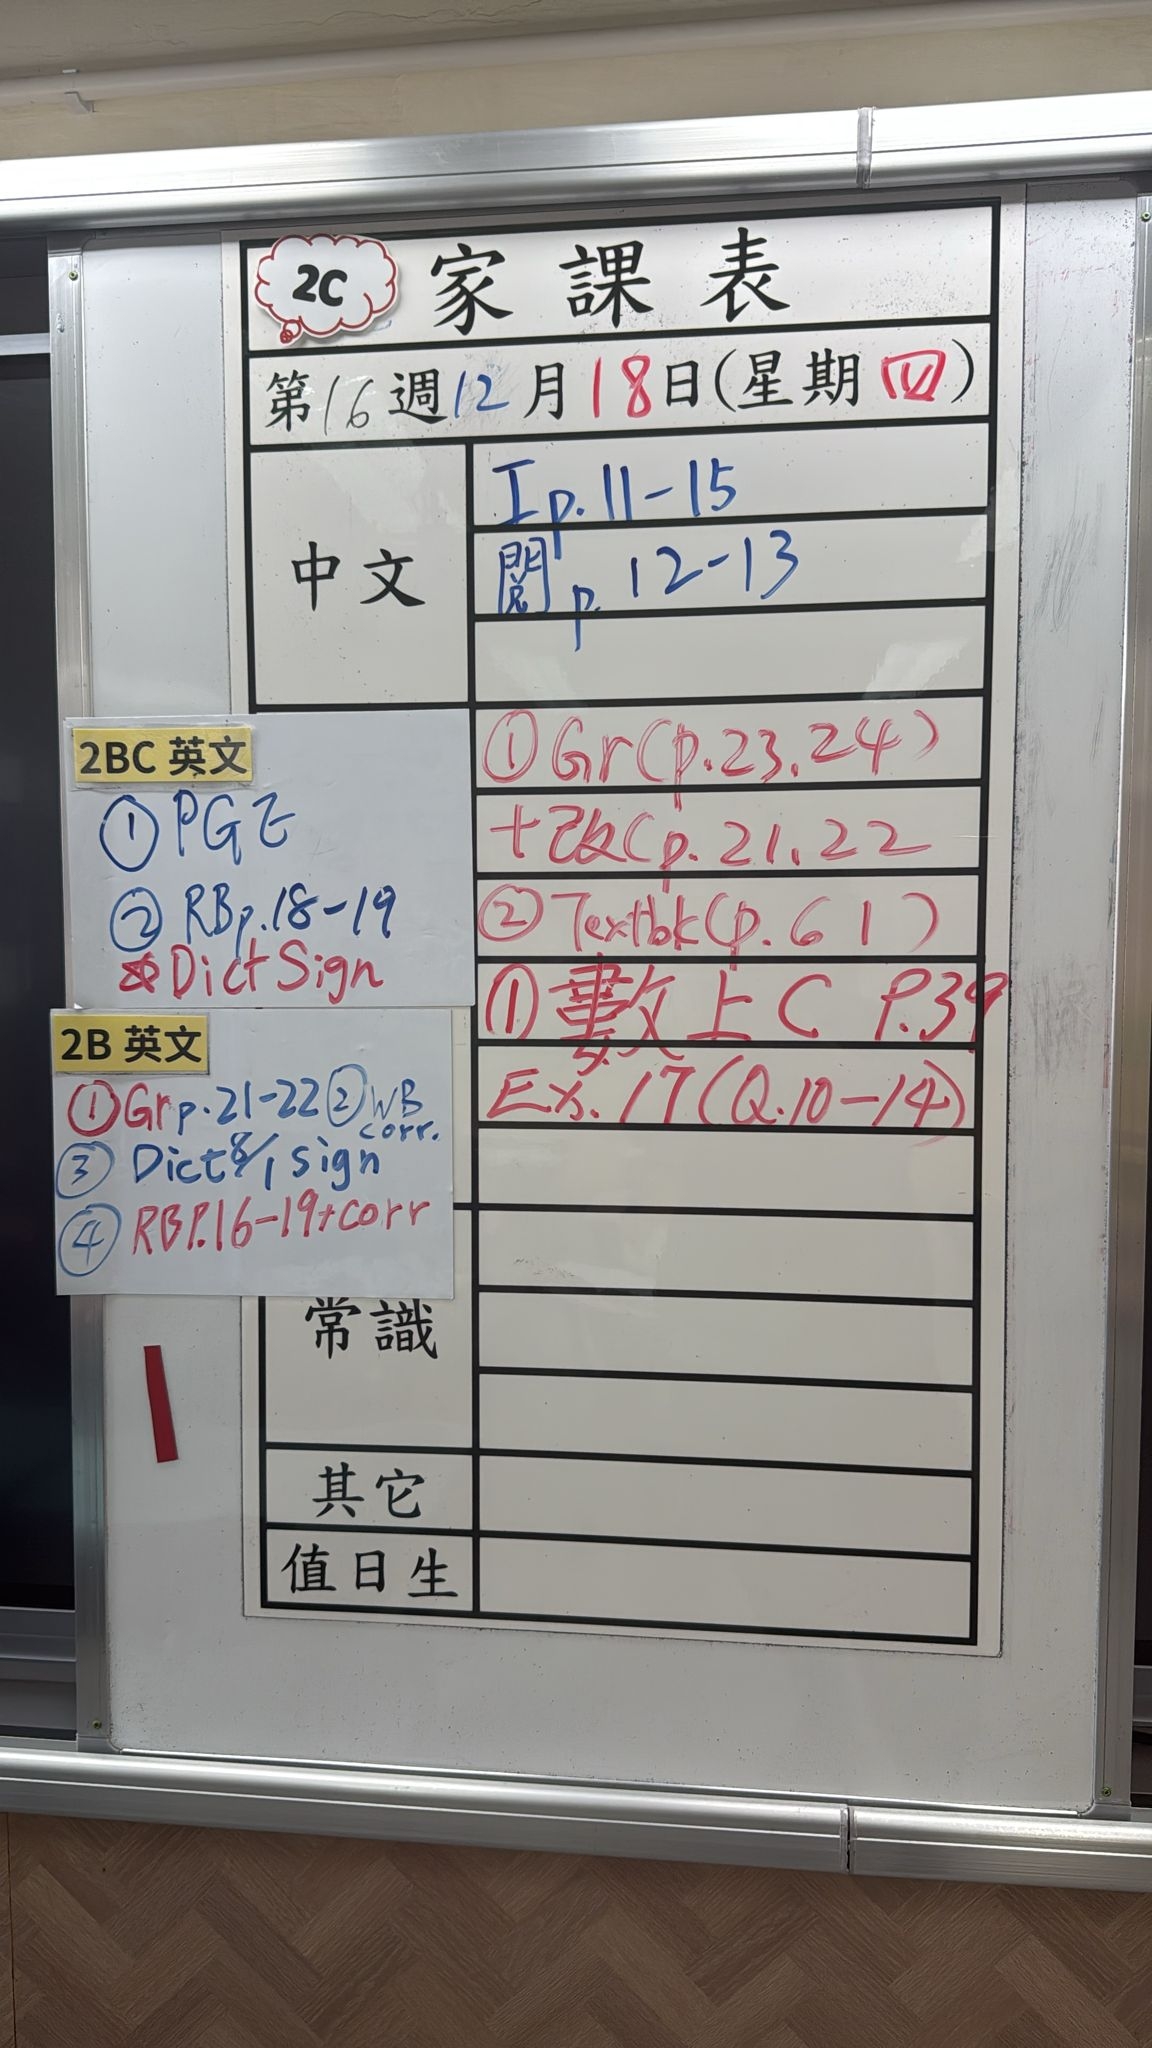 2C 家課表
第16週12月18日(星期四)
中文
工 p.11-15
閱 p.12-13
2BC 英文
① PGE
② RB p.18-19
☆ Dict Sign
① Gr (p.23.24)
+改(p.21.22
② Textbk (p.61)
2B 英文
① Gr p.21-22 ② WB corr.
③ Dict 8/1 sign
④ RB P.16-19+corr
① 數上C P.39
Ex. 17 (Q.10-14)
常識
其它
值日生